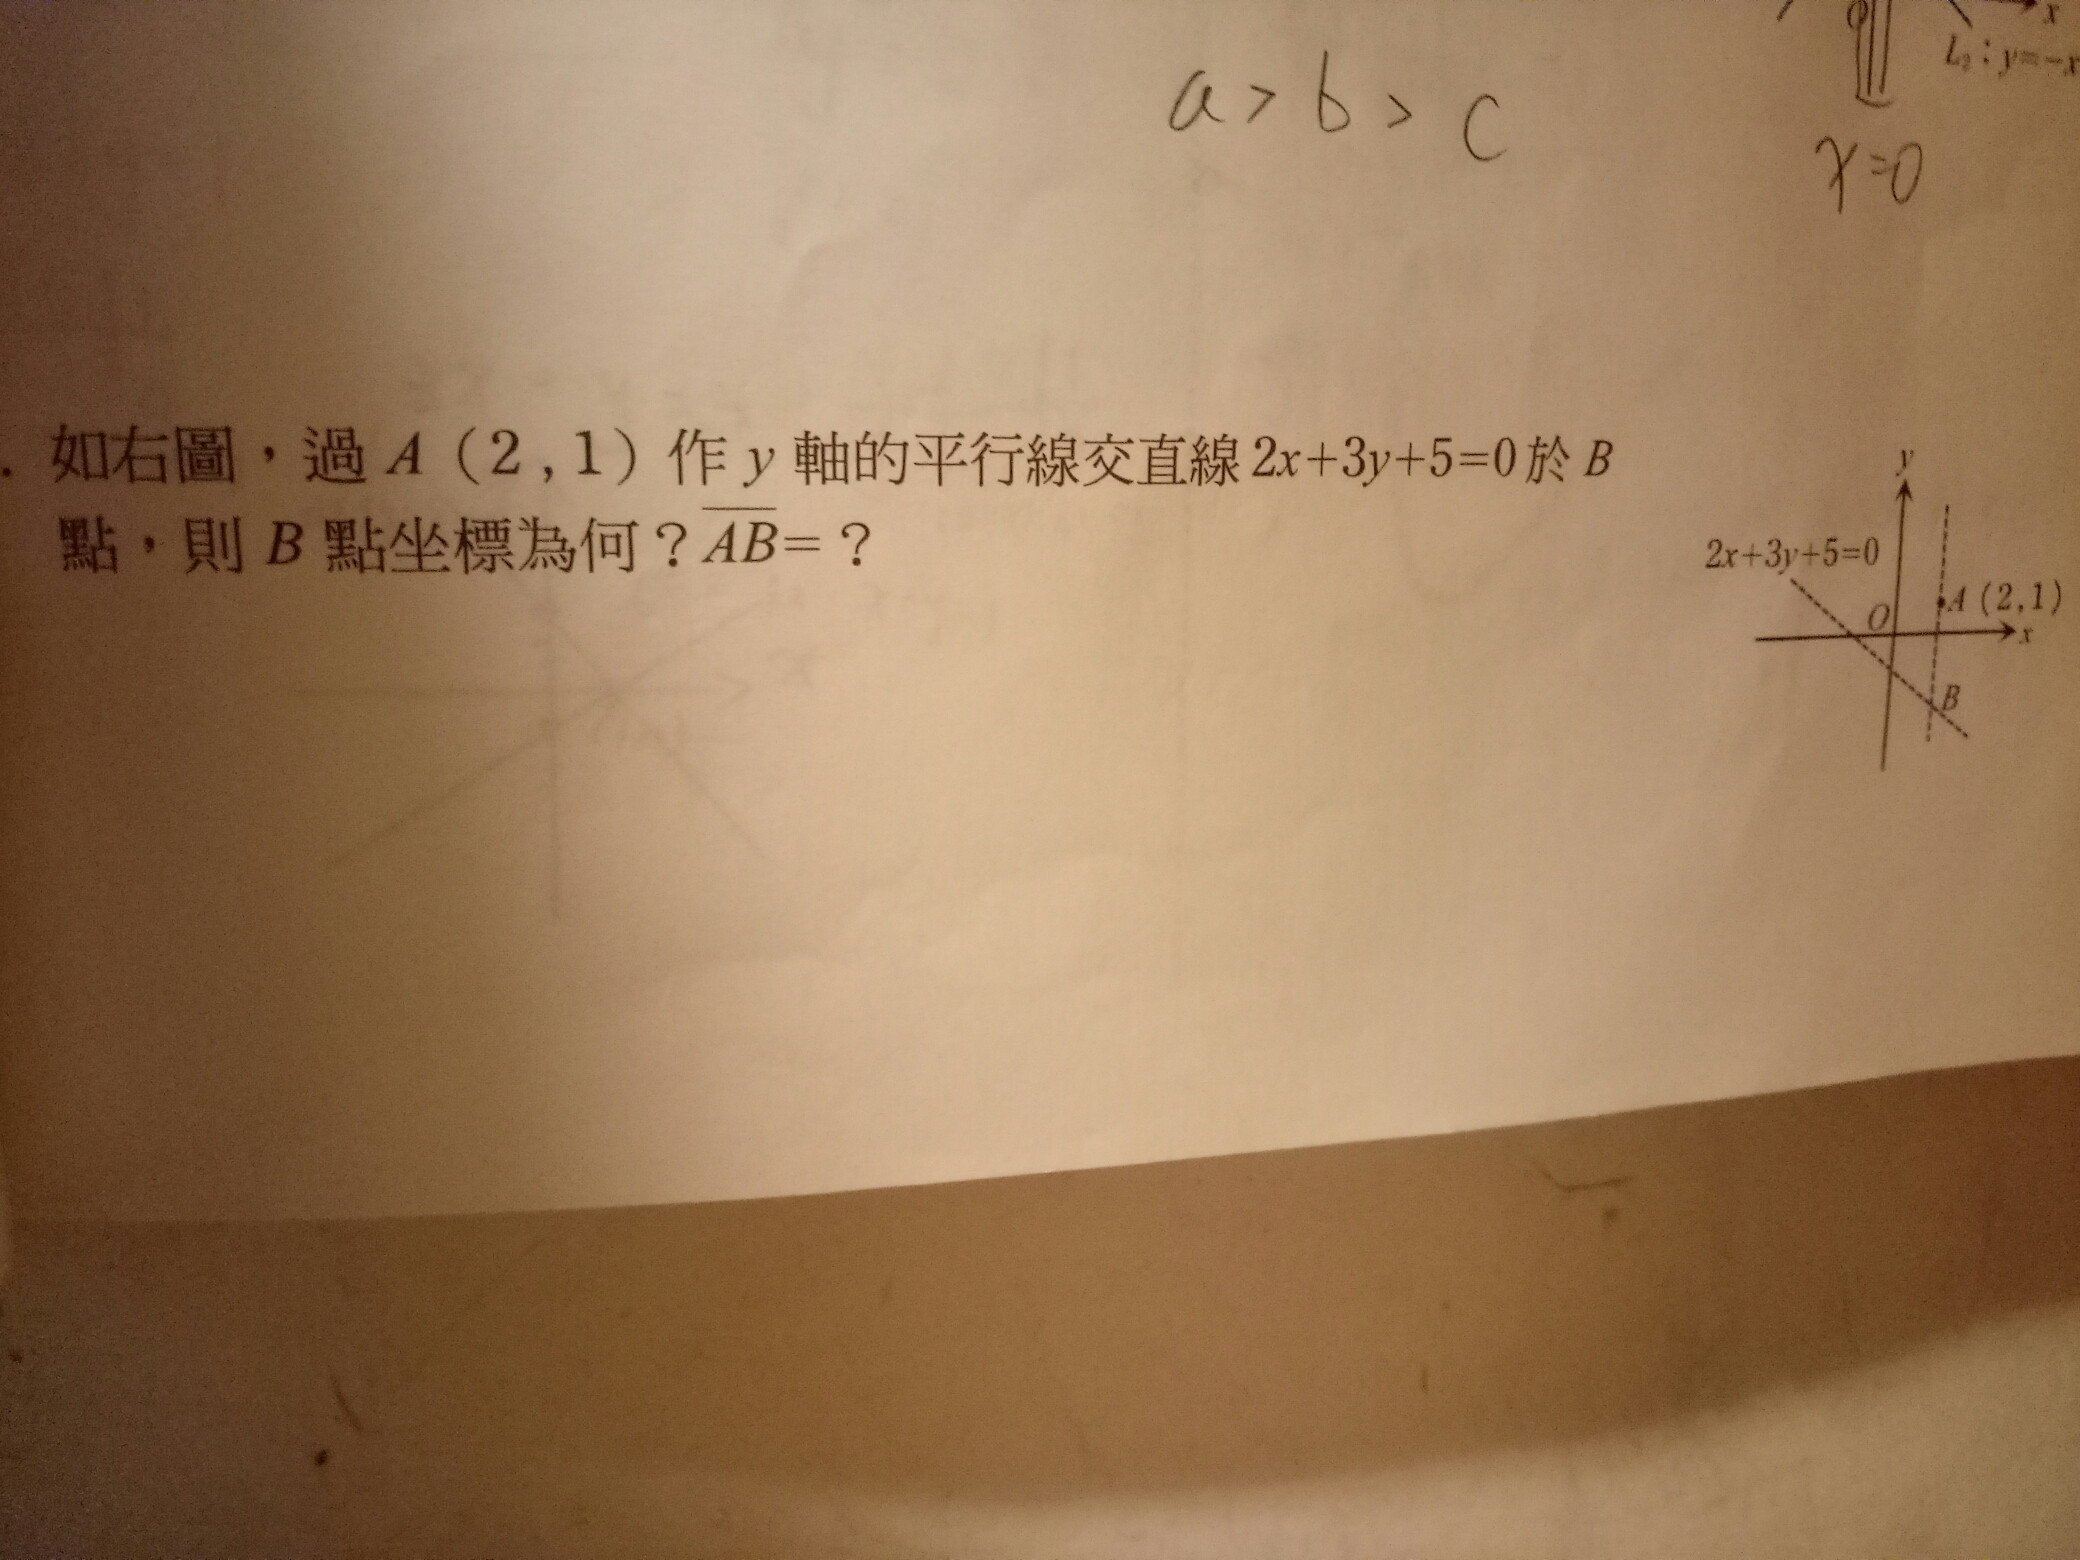 x
L₂：y=-x
a > b > c
x=0
. 如右圖，過 A（2 , 1）作 y 軸的平行線交直線 2x+3y+5=0 於 B
點，則 B 點坐標為何？\overline{AB}=？
y
2x+3y+5=0
A（2,1）
O
x
B